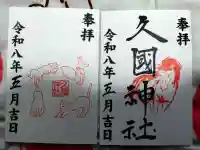 奉拝
久國神社
令和八年五月吉日
奉拝
令和八年五月吉日